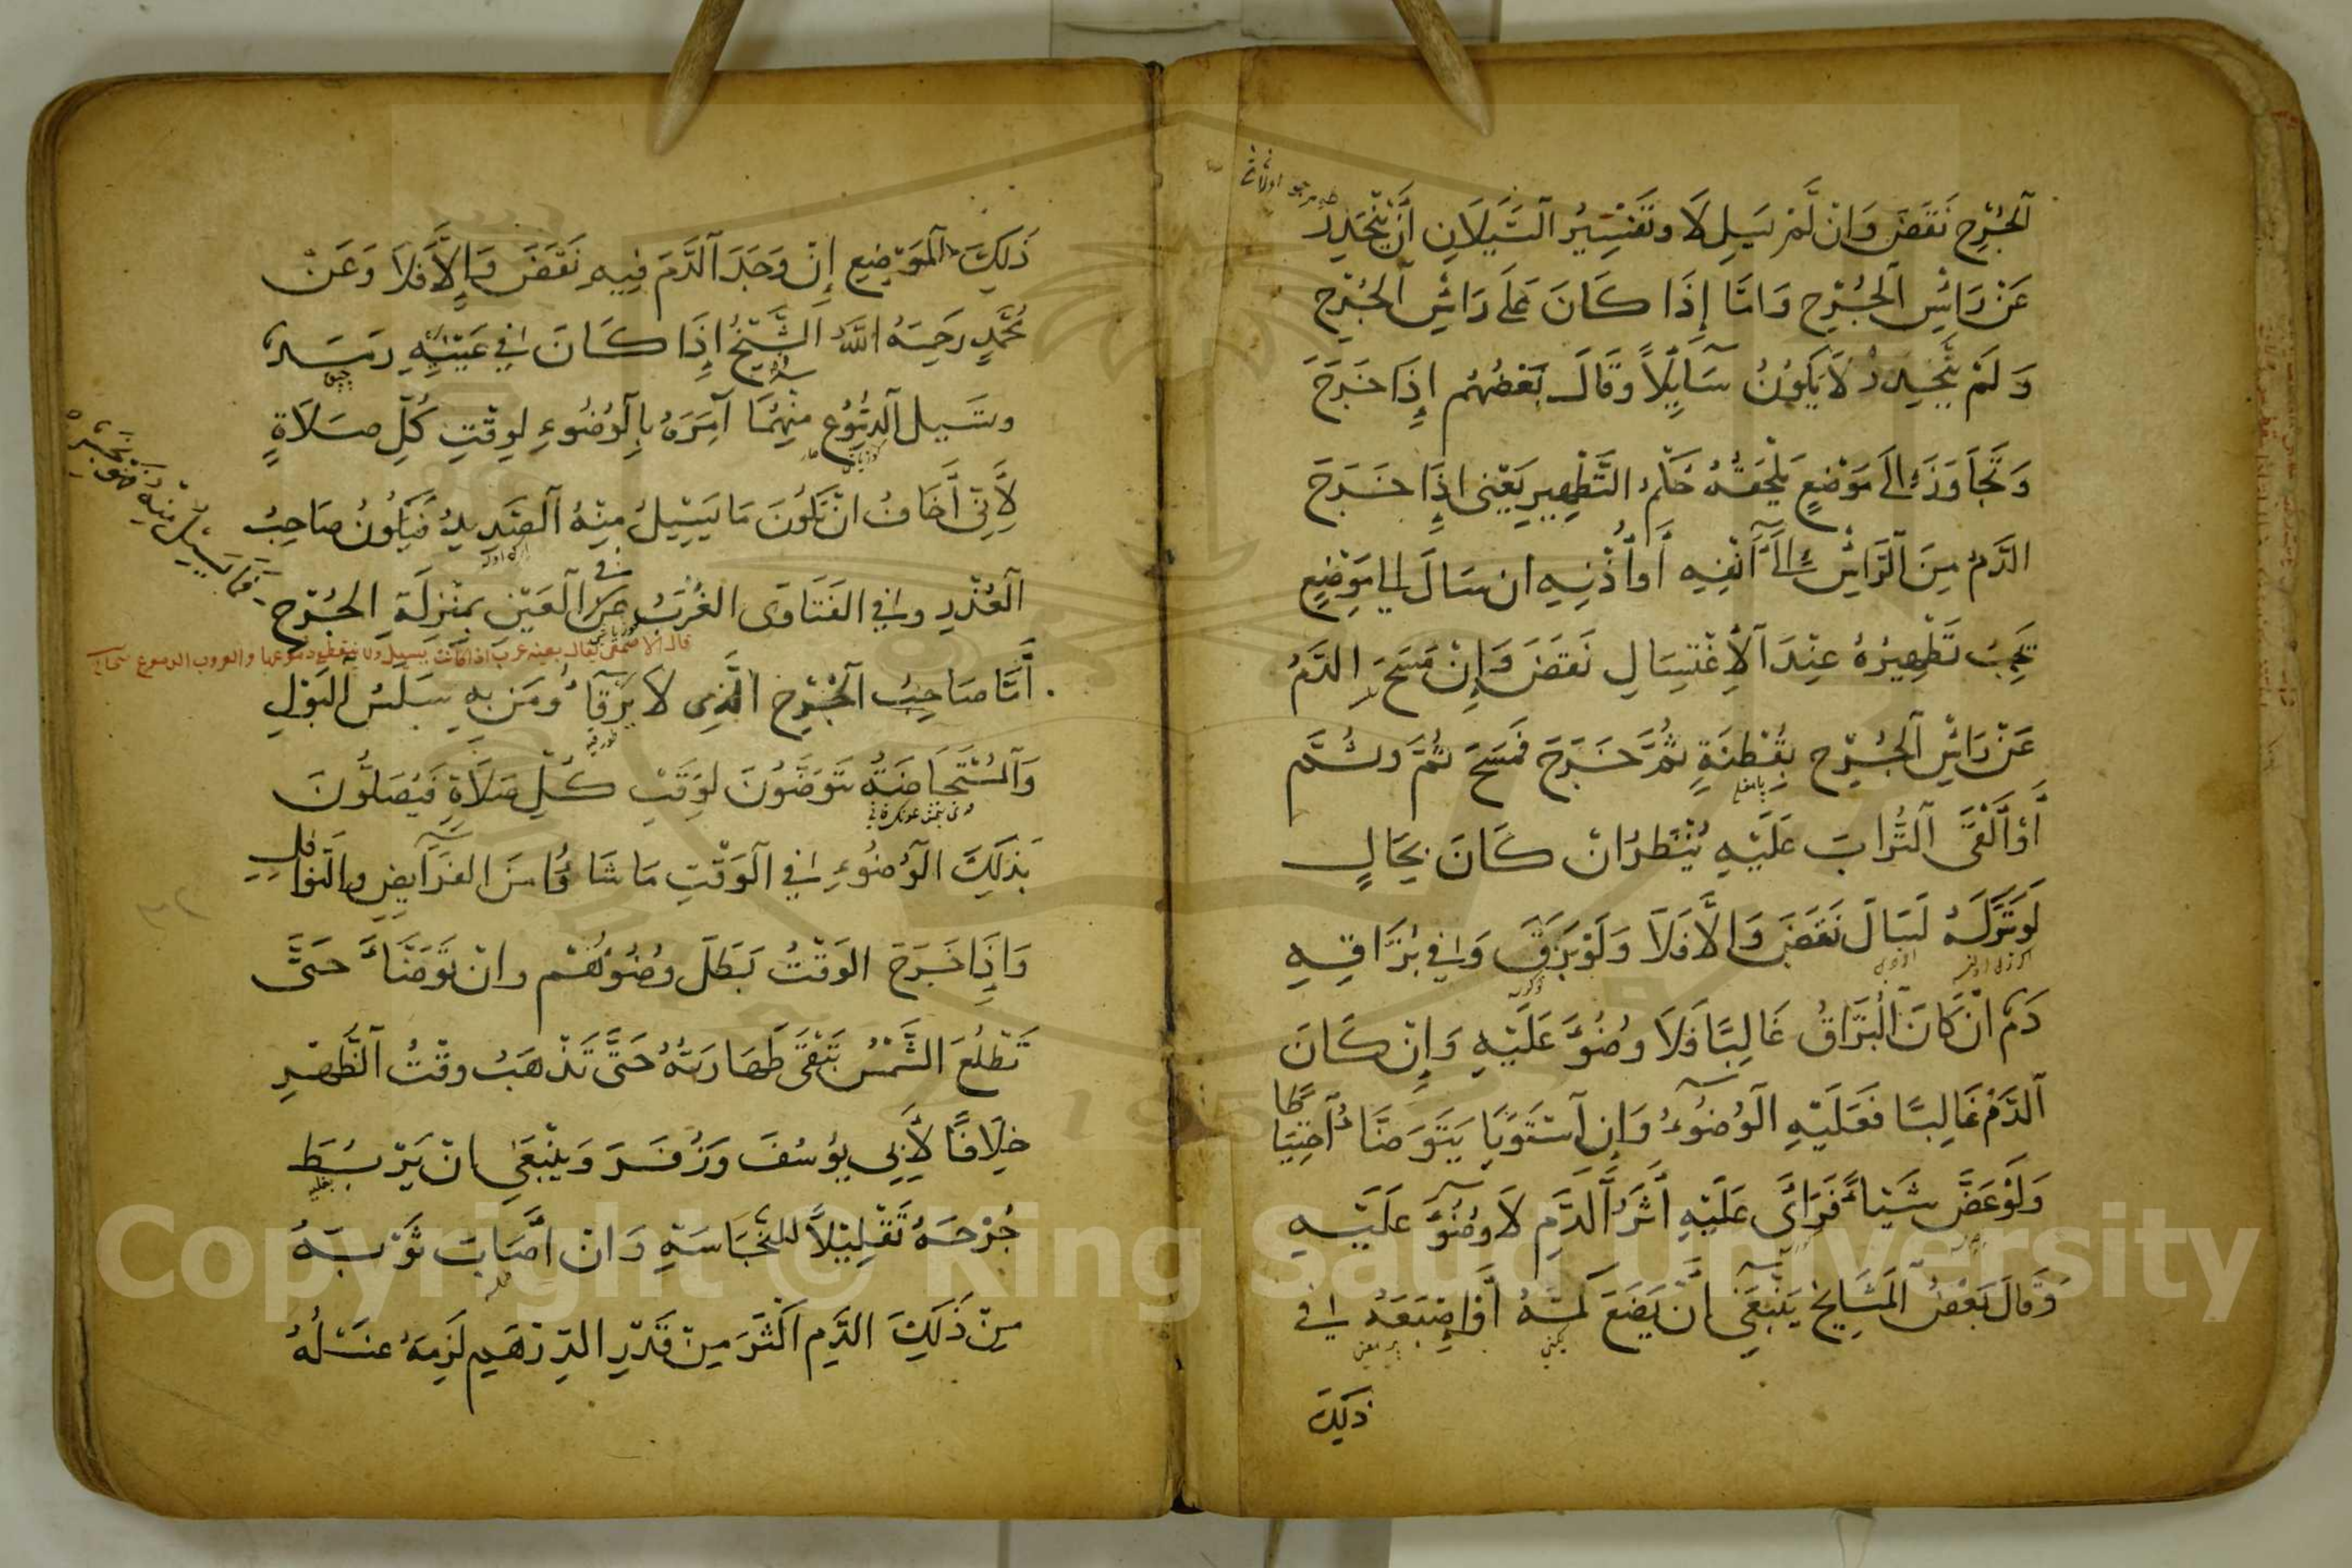 اَلْجُرْحِ نَقَضَ وَاِنْ لَمْ يَسِلْ لَا وتَفْسِيرُ السَّيَلَانِ اَنْ يَنْحَدِرَ
عَنْ رَأْسِ الْجُرْحِ وَاَمَّا إِذَا كَانَ عَلَى رَأْسِ الْجُرْحِ
وَلَمْ يَنْحَدِرْ لَا يَكُونُ سَايِلًا وَقَالَ بَعْضُهُم إِذَا خَرَجَ
وَتَجَاوَزَ اِلَى مَوْضِعٍ يَلْحَقُهُ حُكْمُ التَّطْهِيرِ يَعْنِى اِذَا خَرَجَ
الدَّمُ مِنَ الرَّأْسِ اِلَى اَنْفِهِ أَوْ أُذُنِهِ ان سَالَ الى مَوْضِعٍ
يَجِبُ تَطْهِيرُهُ عِنْدَ الْاِغْتِسَالِ نَقَضَ وَاِنْ مَسَحَ الدَّمُ
عَنْ رَأْسِ الْجُرْحِ بِقُطْنَةٍ ثُمَّ خَرَجَ فَمَسَحَ ثُمَّ وثُمَّ
أَوْ أَلْقَى التُّرَابَ عَلَيْهِ يُنْظَرُ اِنْ كَانَ بِحَالٍ
لَوْ تَرَكَهُ لَسَالَ نَقَضَ وَاِلَّا فَلَا وَلَوْ بَزَقَ وَفِي بُزَاقِهِ
دَمٌ اِنْ كَانَ الْبُزَاقُ غَالِبًا فَلَا وُضُوءَ عَلَيْهِ وَاِنْ كَانَ
الدَّمُ غَالِبًا فَعَلَيْهِ الْوُضُوءُ وَاِن اسْتَوَيَا يَتَوَضَّأُ اِحْتِيَاطًا
وَلَوْ عَضَّ شَيْئًا فَرَأَى عَلَيْهِ أَثَرَ الدَّمِ لَا وُضُوءَ عَلَيْهِ
وَقَالَ بَعْضُ الْمَشَايِخِ يَنْبَغِى اَنْ يَضَعَ كُمَّهُ اَوْ اِصْبَعَهُ فِي
ذلك
ذَلِكَ الْمَوْضِعِ إِنْ وَجَدَ الدَّمَ فِيهِ نَقَضَ وَإِلَّا فَلَا وَعَنْ
مُحَمَّدٍ رَحِمَهُ اللّٰهُ الشَّيْخُ اِذَا كَانَ فِي عَيْنَيْهِ رَمَدٌ
وتَسِيل الدُّمُوعُ مِنْهُمَا آمُرُهُ بِالْوُضُوءِ لِوَقْتِ كُلِّ صَلَاةٍ
لِأَنِّي أَخَافُ اَنْ يَكُونَ مَا يَسِيلُ مِنْهُ الصَّدِيدُ فَيَكُونُ صَاحِبُ
الْعُذْرِ وفِي الفَتَاوَى الغُرَبُ فى الْعَيْنِ بِمَنْزِلَةِ الجُرْحِ
فَمَا يَسِيلُ مِنْهُ
قال الاصمعى يقال بعينه غرب اذا كانت تسيل ولا تنقطع دموعها والغروب الدموع
أَمَّا صَاحِبُ الْجُرْحِ الَّذِى لَا يَرْقَأُ وَمَنْ بِهِ سَلَسُ الْبَوْلِ
وَالْمُسْتَحَاضَةُ يَتَوَضَّؤُنَ لِوَقْتِ كُلِّ صَلَاةٍ فَيُصَلُّونَ
بِذَلِكَ الْوُضُوءِ فِي الْوَقْتِ مَا شَاؤُا مِنَ الفَرَايِضِ والنَّوَافِلِ
وَاِذَا خَرَجَ الوَقْتُ بَطَلَ وضُوؤُهُمْ وان تَوَضَّأَ حَتَّى
تَطْلُعَ الشَّمْسُ تَبْقَى طَهَارَتُهُ حَتَّى تَذْهَبَ وقْتُ الظُّهْرِ
خِلَافًا لِأَبِي يُوسُفَ وَزُفَرَ وَيَنْبَغِى اَنْ يَرْبُطَ
جُرْحَهُ تَقْلِيلًا لِلنَّجَاسَةِ وَاِنْ اَصَابَ ثَوْبَهُ
مِنْ ذَلِكَ الدَّمِ اَكْثَرَ مِنْ قَدْرِ الدِّرْهَمِ لَزِمَهُ غَسْلُهُ
Copyright © King Saud University